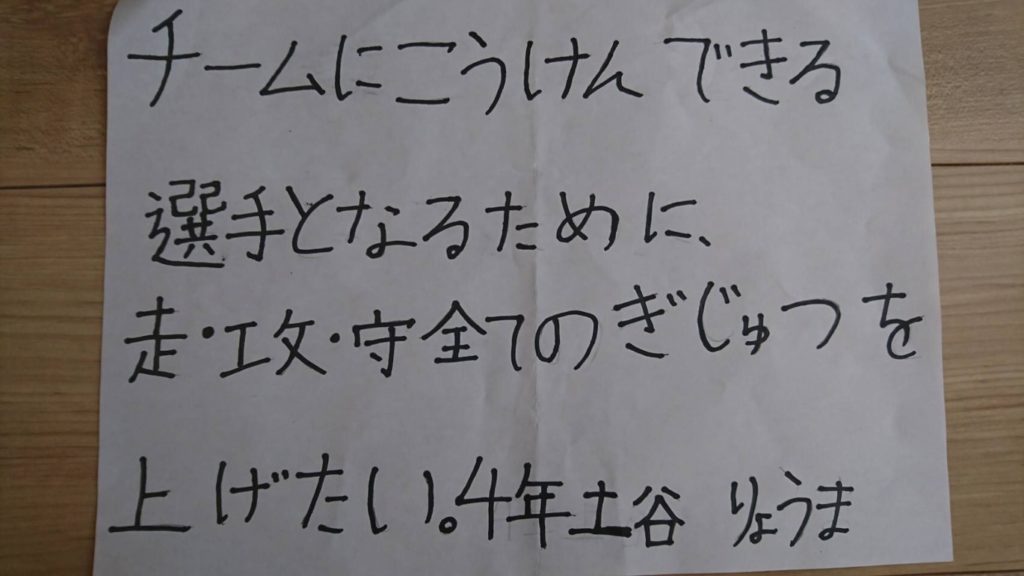 チームにこうけんできる
選手となるために、
走・攻・守全てのぎじゅつを
上げたい。4年土谷 りょうま